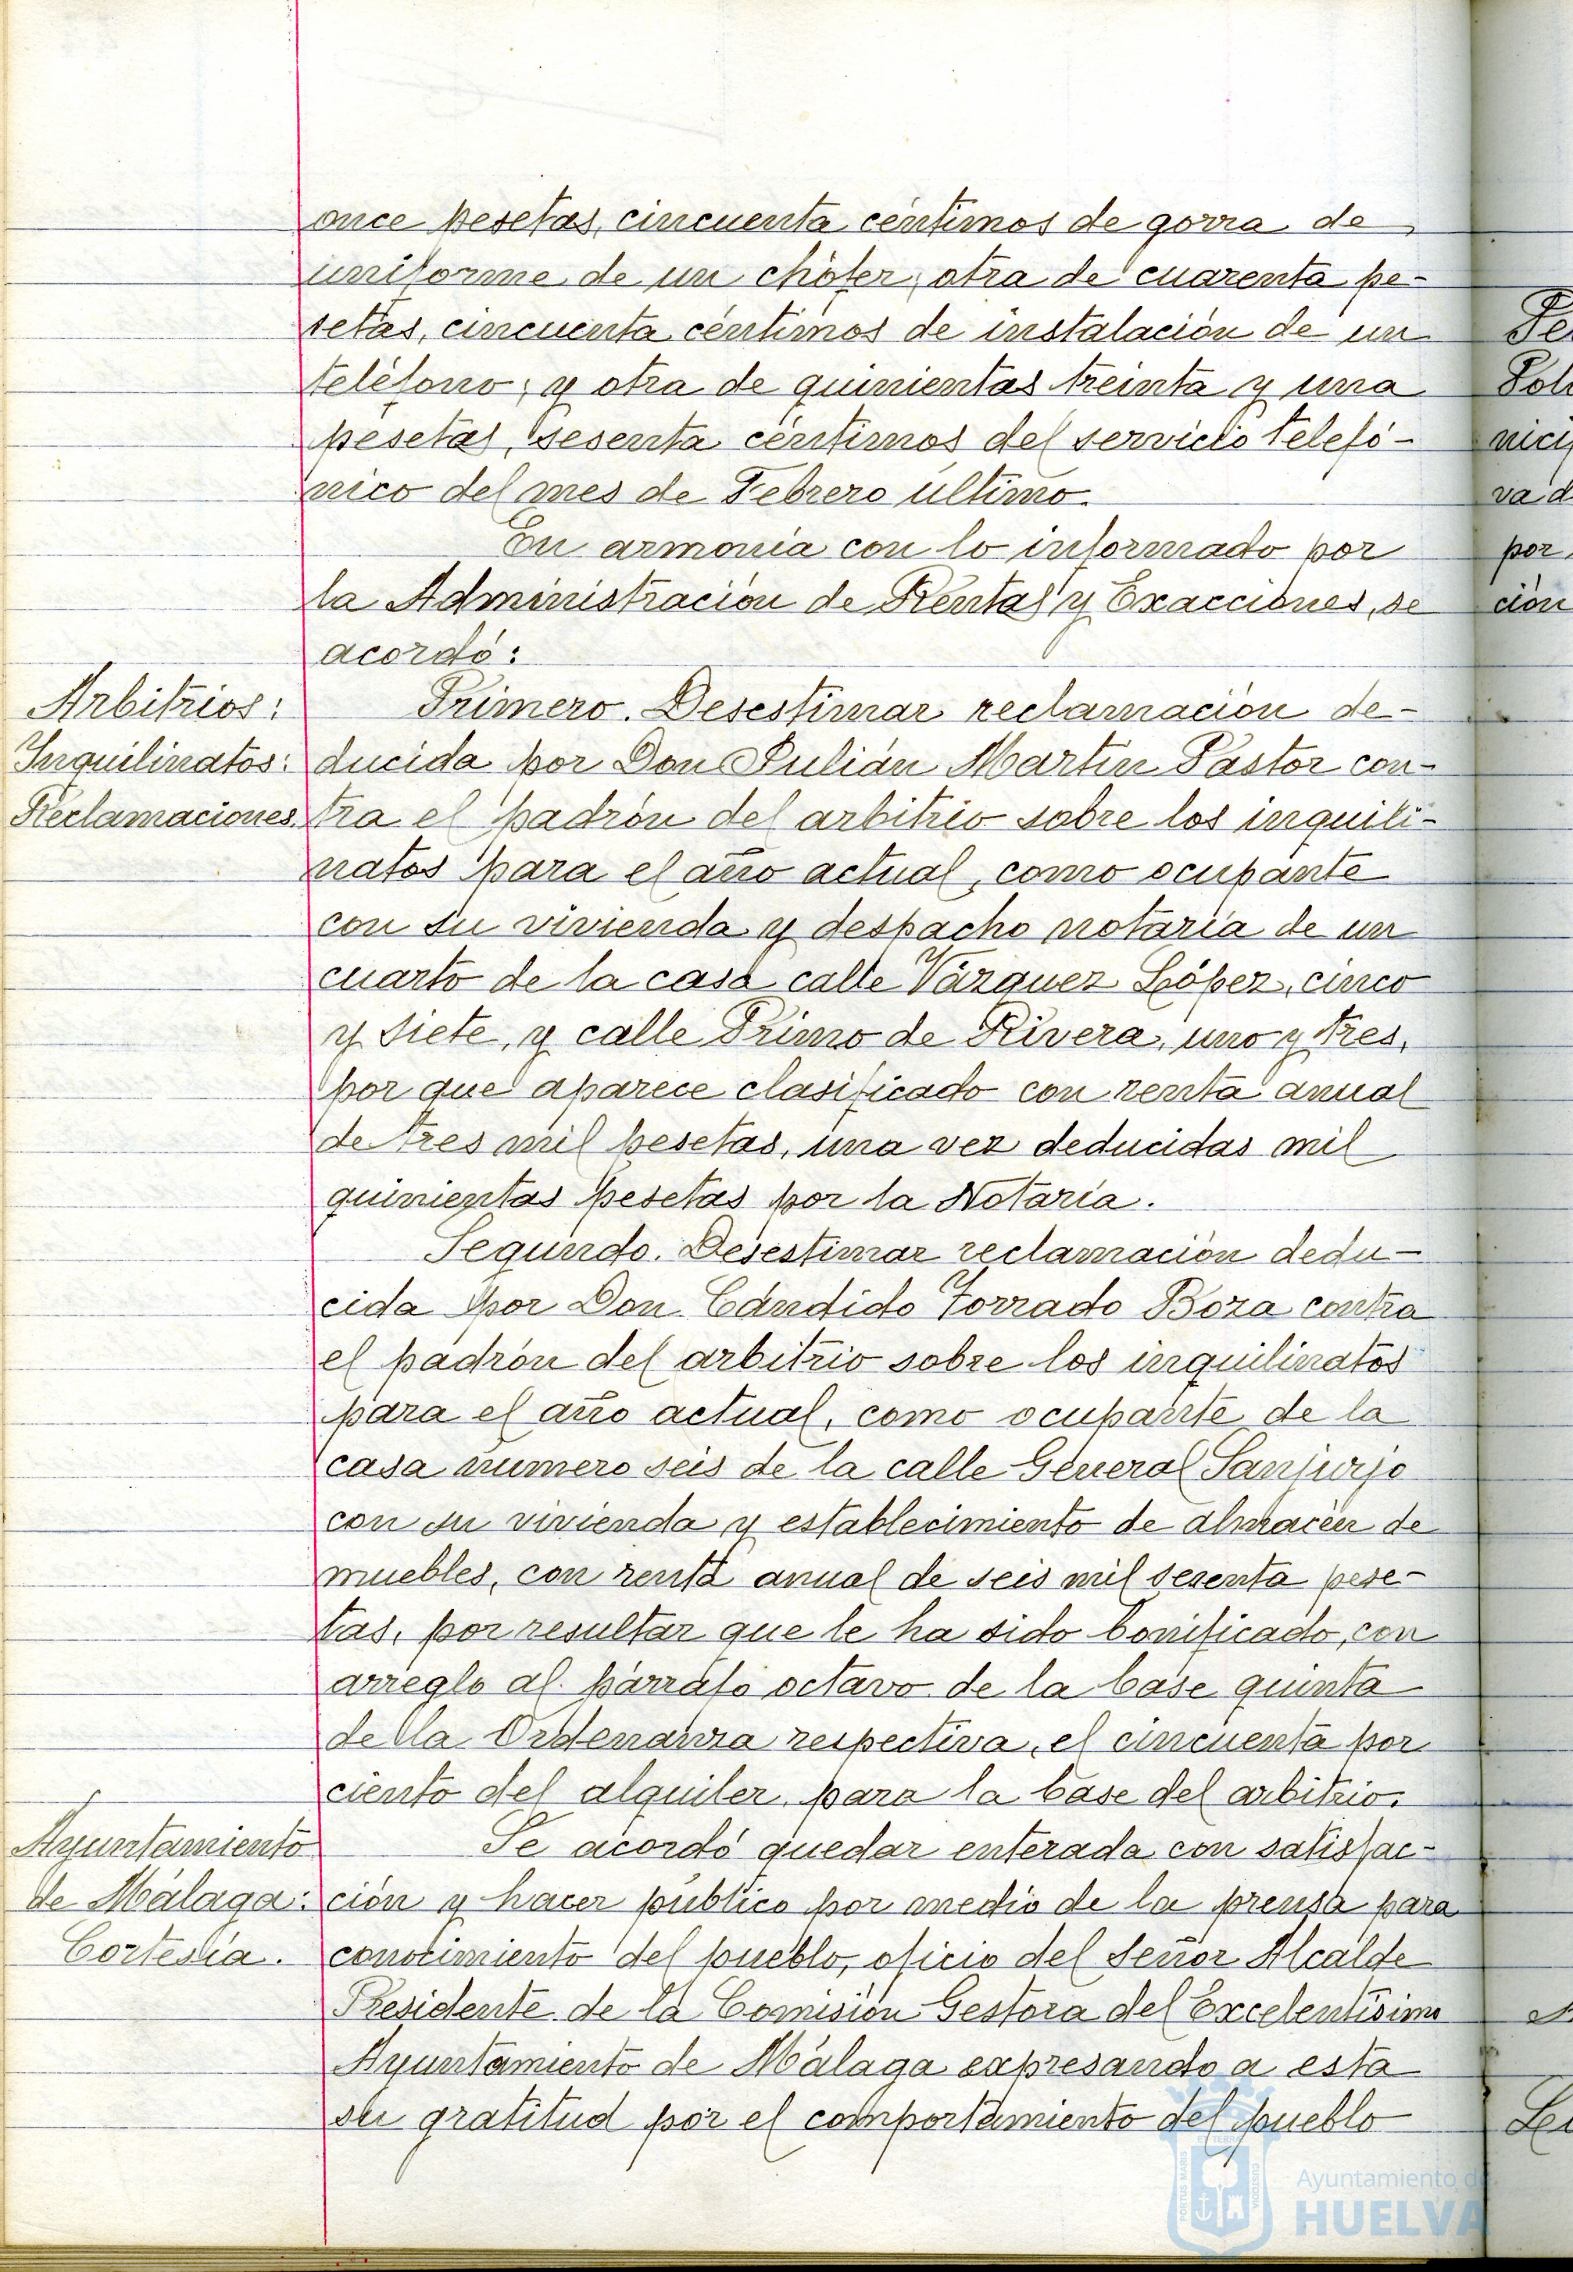 once pesetas, cincuenta céntimos de gorra de
uniforme de un chófer; otra de cuarenta pe-
setas, cincuenta céntimos de instalación de un
teléfono; y otra de quinientas treinta y una
pesetas, sesenta céntimos del servicio telefó-
nico del mes de Febrero último.
En armonía con lo informado por
la Administración de Rentas y Exacciones, se
acordó:
Arbitrios:
Inquilinatos:
Reclamaciones.
Primero. Desestimar reclamación de-
ducida por Don Julián Martín Pastor con-
tra el padrón del arbitrio sobre los inquili-
natos para el año actual, como ocupante
con su vivienda y despacho notaría de un
cuarto de la casa calle Vázquez López, cinco
y siete, y calle Primo de Rivera, uno y tres,
por que aparece clasificado con renta anual
de tres mil pesetas, una vez deducidas mil
quinientas pesetas por la Notaría.
Segundo. Desestimar reclamación dedu-
cida por Don Cándido Forrado Boza contra
el padrón del arbitrio sobre los inquilinatos
para el año actual, como ocupante de la
casa número seis de la calle General Sanjurjo
con su vivienda y establecimiento de almacén de
muebles, con renta anual de seis mil sesenta pese-
tas, por resultar que le ha sido bonificado, con
arreglo al párrafo octavo de la base quinta
de la Ordenanza respectiva, el cincuenta por
ciento del alquiler para la base del arbitrio.
Ayuntamiento
de Málaga:
Cortesía.
Se acordó quedar enterada con satisfac-
ción y hacer público por medio de la prensa para
conocimiento del pueblo, oficio del Señor Alcalde
Presidente de la Comisión Gestora del Excelentísimo
Ayuntamiento de Málaga expresando a esta
su gratitud por el comportamiento del pueblo
PORTUS MARIS
ET TERRAE
CUSTODIA
Ayuntamiento de
HUELVA
por
ción
va d